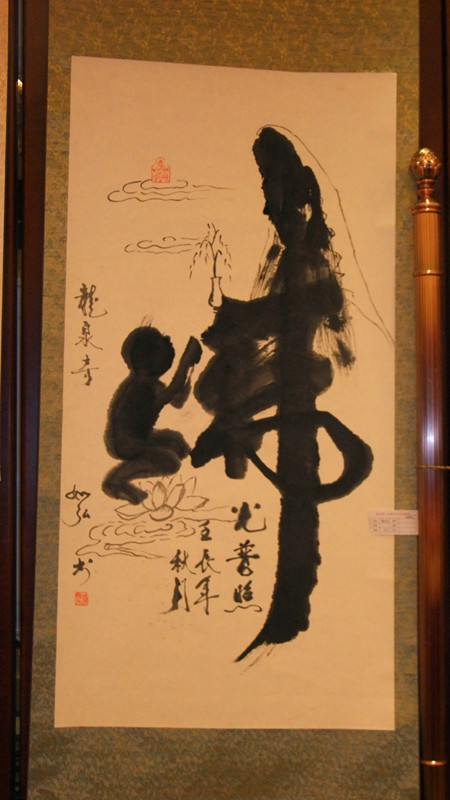 佛
光普照
壬辰年
秋月
龍泉寺
如弘书